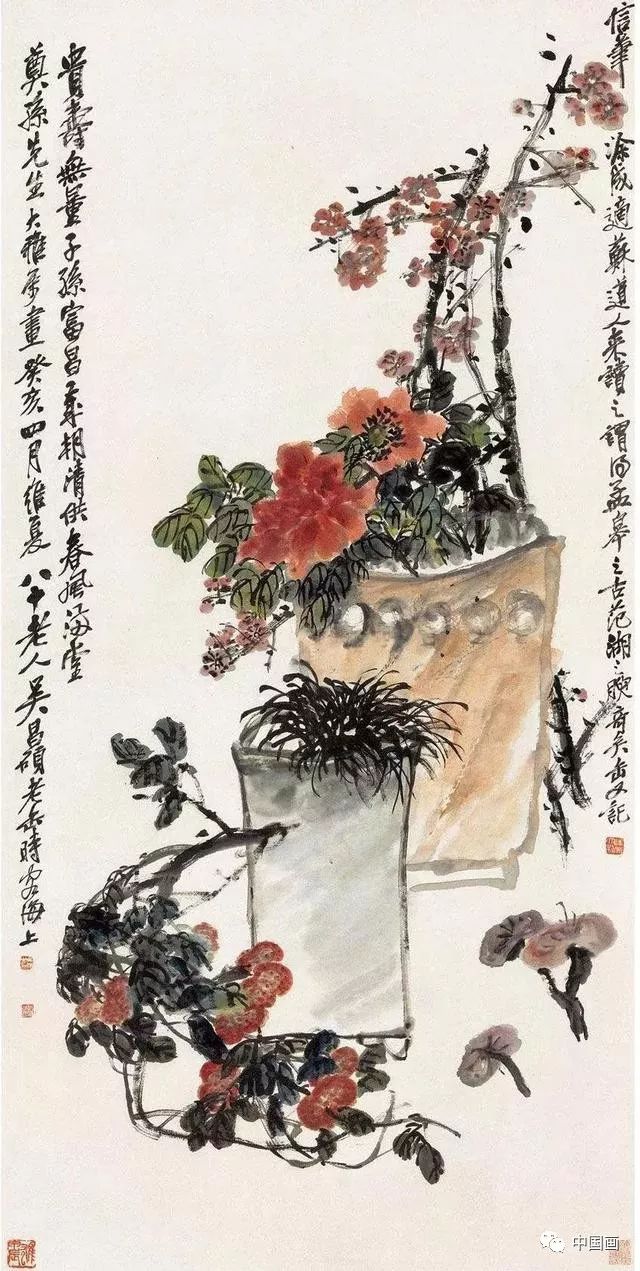 信筆塗成適蘇道人来讀之謂得孟皋之古范湖之腴奇矣缶又記
貴壽無量子孫富昌相清供春風滿堂
奠孫先生大雅屬畫癸亥四月維夏八十老人吳昌碩老缶時客海上
中国画